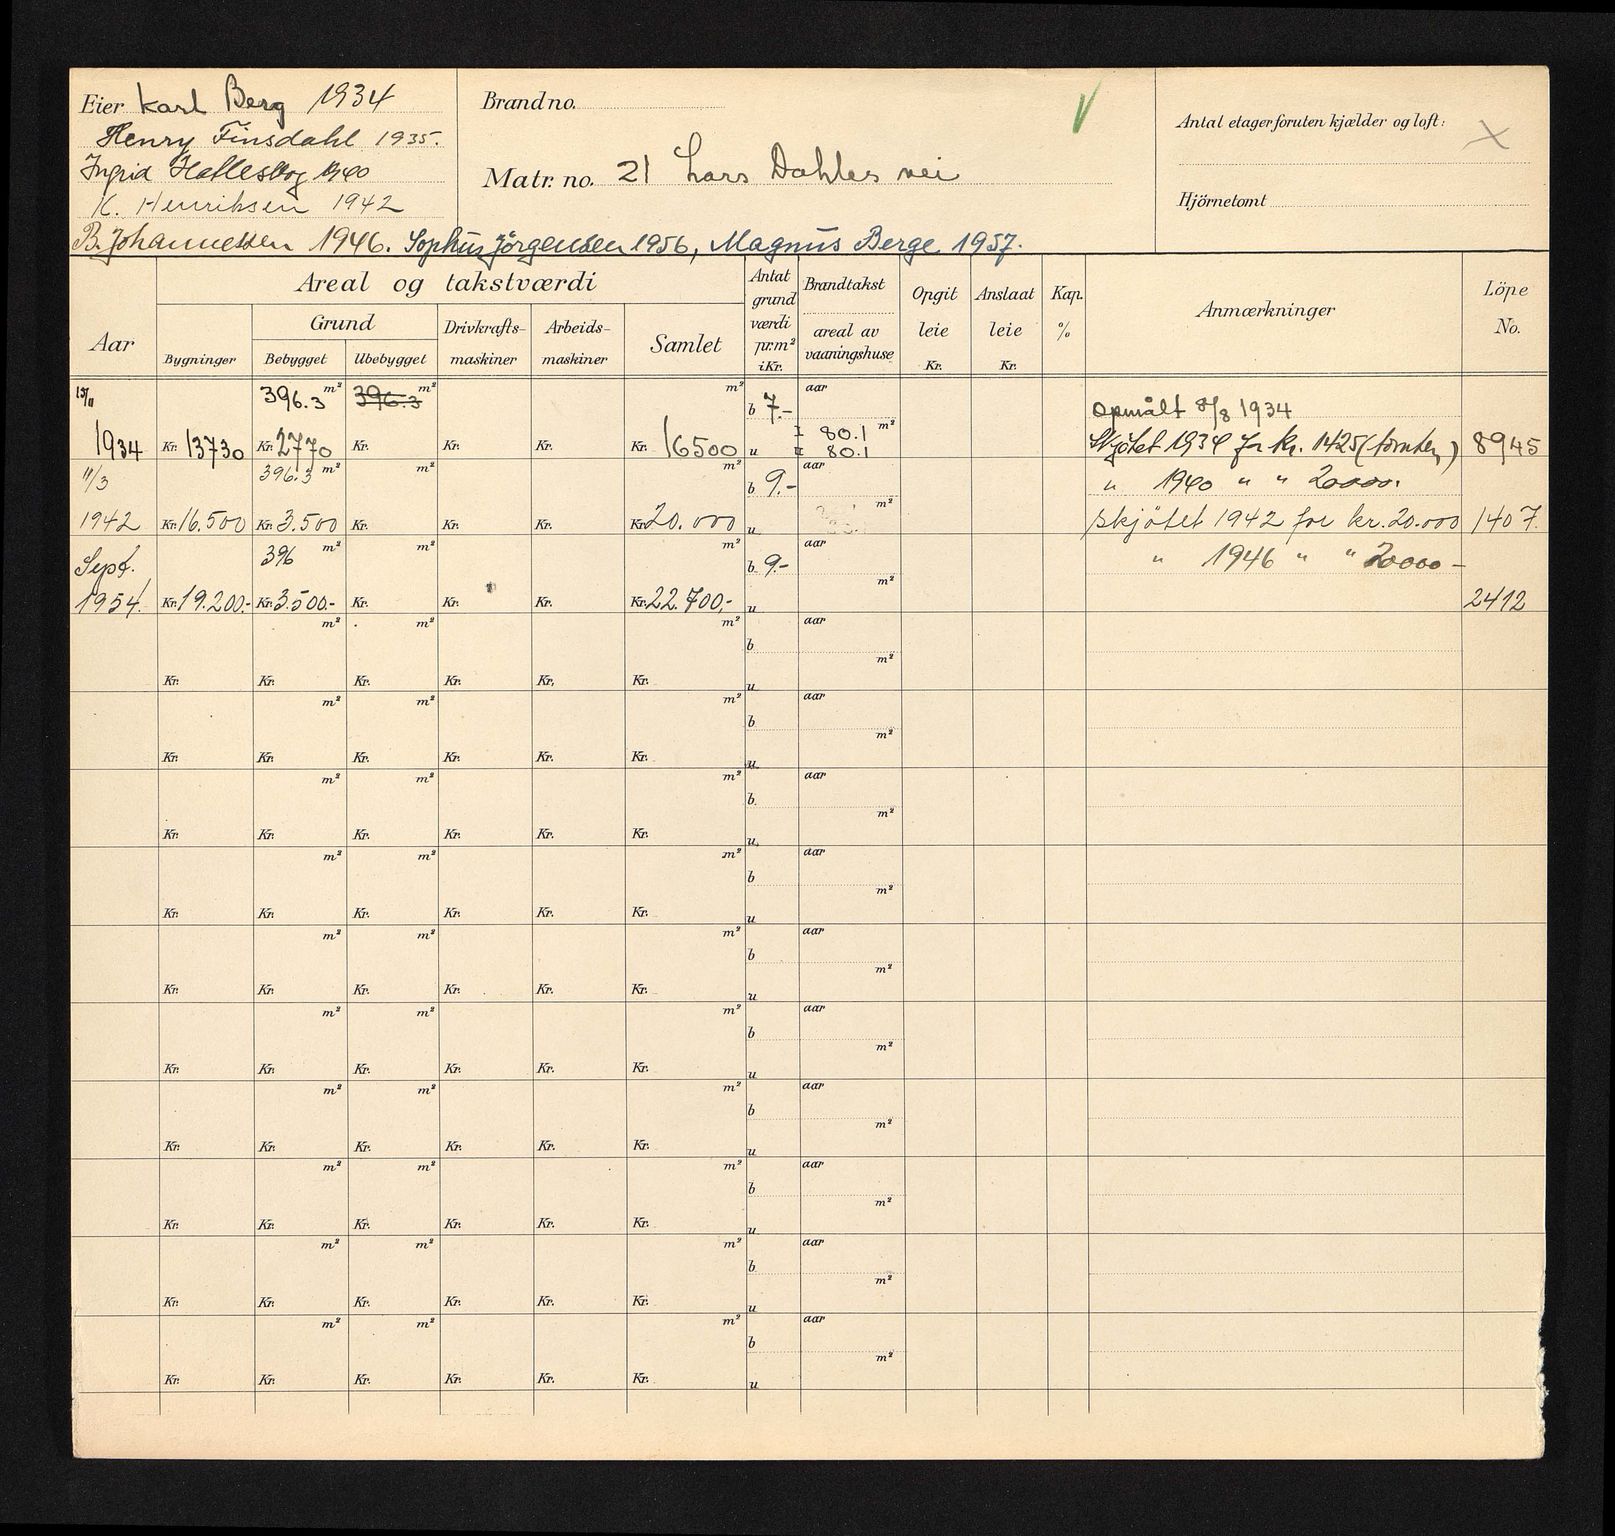 Eier Karl Berg 1934
Henry Finsdahl 1935.
Ingrid Hallesbog 1940
K. Henriksen 1942
B. Johannessen 1946. Sophus Jörgensen 1956, Magnus Berge 1957.
Brand no.
Matr. no. 21 Lars Dahles vei
V
Antal etager foruten kjælder og loft: X
Hjörnetomt
Aar
Areal og takstværdi
Bygninger
Grund
Bebygget Ubebygget
Drivkrafts-maskiner
Arbeids-maskiner
Samlet
Antat grund værdi pr.m² i Kr.
Brandtakst
areal av vaaningshuse
Opgit leie Kr.
Anslaat leie Kr.
Kap. %
Anmærkninger
Löpe No.
13/11 396.3 m² 396.3 m² m² b 7.- aar Opmålt 8/8 1934
1934 Kr. 13730 Kr. 2770 Kr. Kr. Kr. Kr. 16500 u I 80.1 m² II 80.1 Skjötet 1934 for kr. 1425 (tomten) 8945
11/3 396.3 m² m² m² b 9.- aar " 1940 " " 20000.
1942 Kr. 16.500 Kr. 3.500 Kr. Kr. Kr. Kr. 20.000 u m² skjötet 1942 for kr. 20.000 1407
Sept. 396 m² m² m² b 9.- aar " 1946 " " 20000 -
1954. Kr. 19.200.- Kr. 3.500.- Kr. Kr. Kr. Kr. 22.700,- u m² 2412
m² m² m² b aar
Kr. Kr. Kr. Kr. Kr. Kr. u m²
m² m² m² b aar
Kr. Kr. Kr. Kr. Kr. Kr. u m²
m² m² m² b. aar
Kr. Kr. Kr. Kr. Kr. Kr. u m²
m² m² m² b aar
Kr. Kr. Kr. Kr. Kr. Kr. u m²
m² m² m² b aar
Kr. Kr. Kr. Kr. Kr. Kr. u m²
m² m² m² b aar
Kr. Kr. Kr. Kr. Kr. Kr. u m²
m² m² m² b aar
Kr. Kr. Kr. Kr. Kr. Kr. u m²
m² m² m² b aar
Kr. Kr. Kr. Kr. Kr. Kr. u m²
m² m² m² b aar
Kr. Kr. Kr. Kr. Kr. Kr. u m²
m² m² m² b aar
Kr. Kr. Kr. Kr. Kr. Kr. u m²